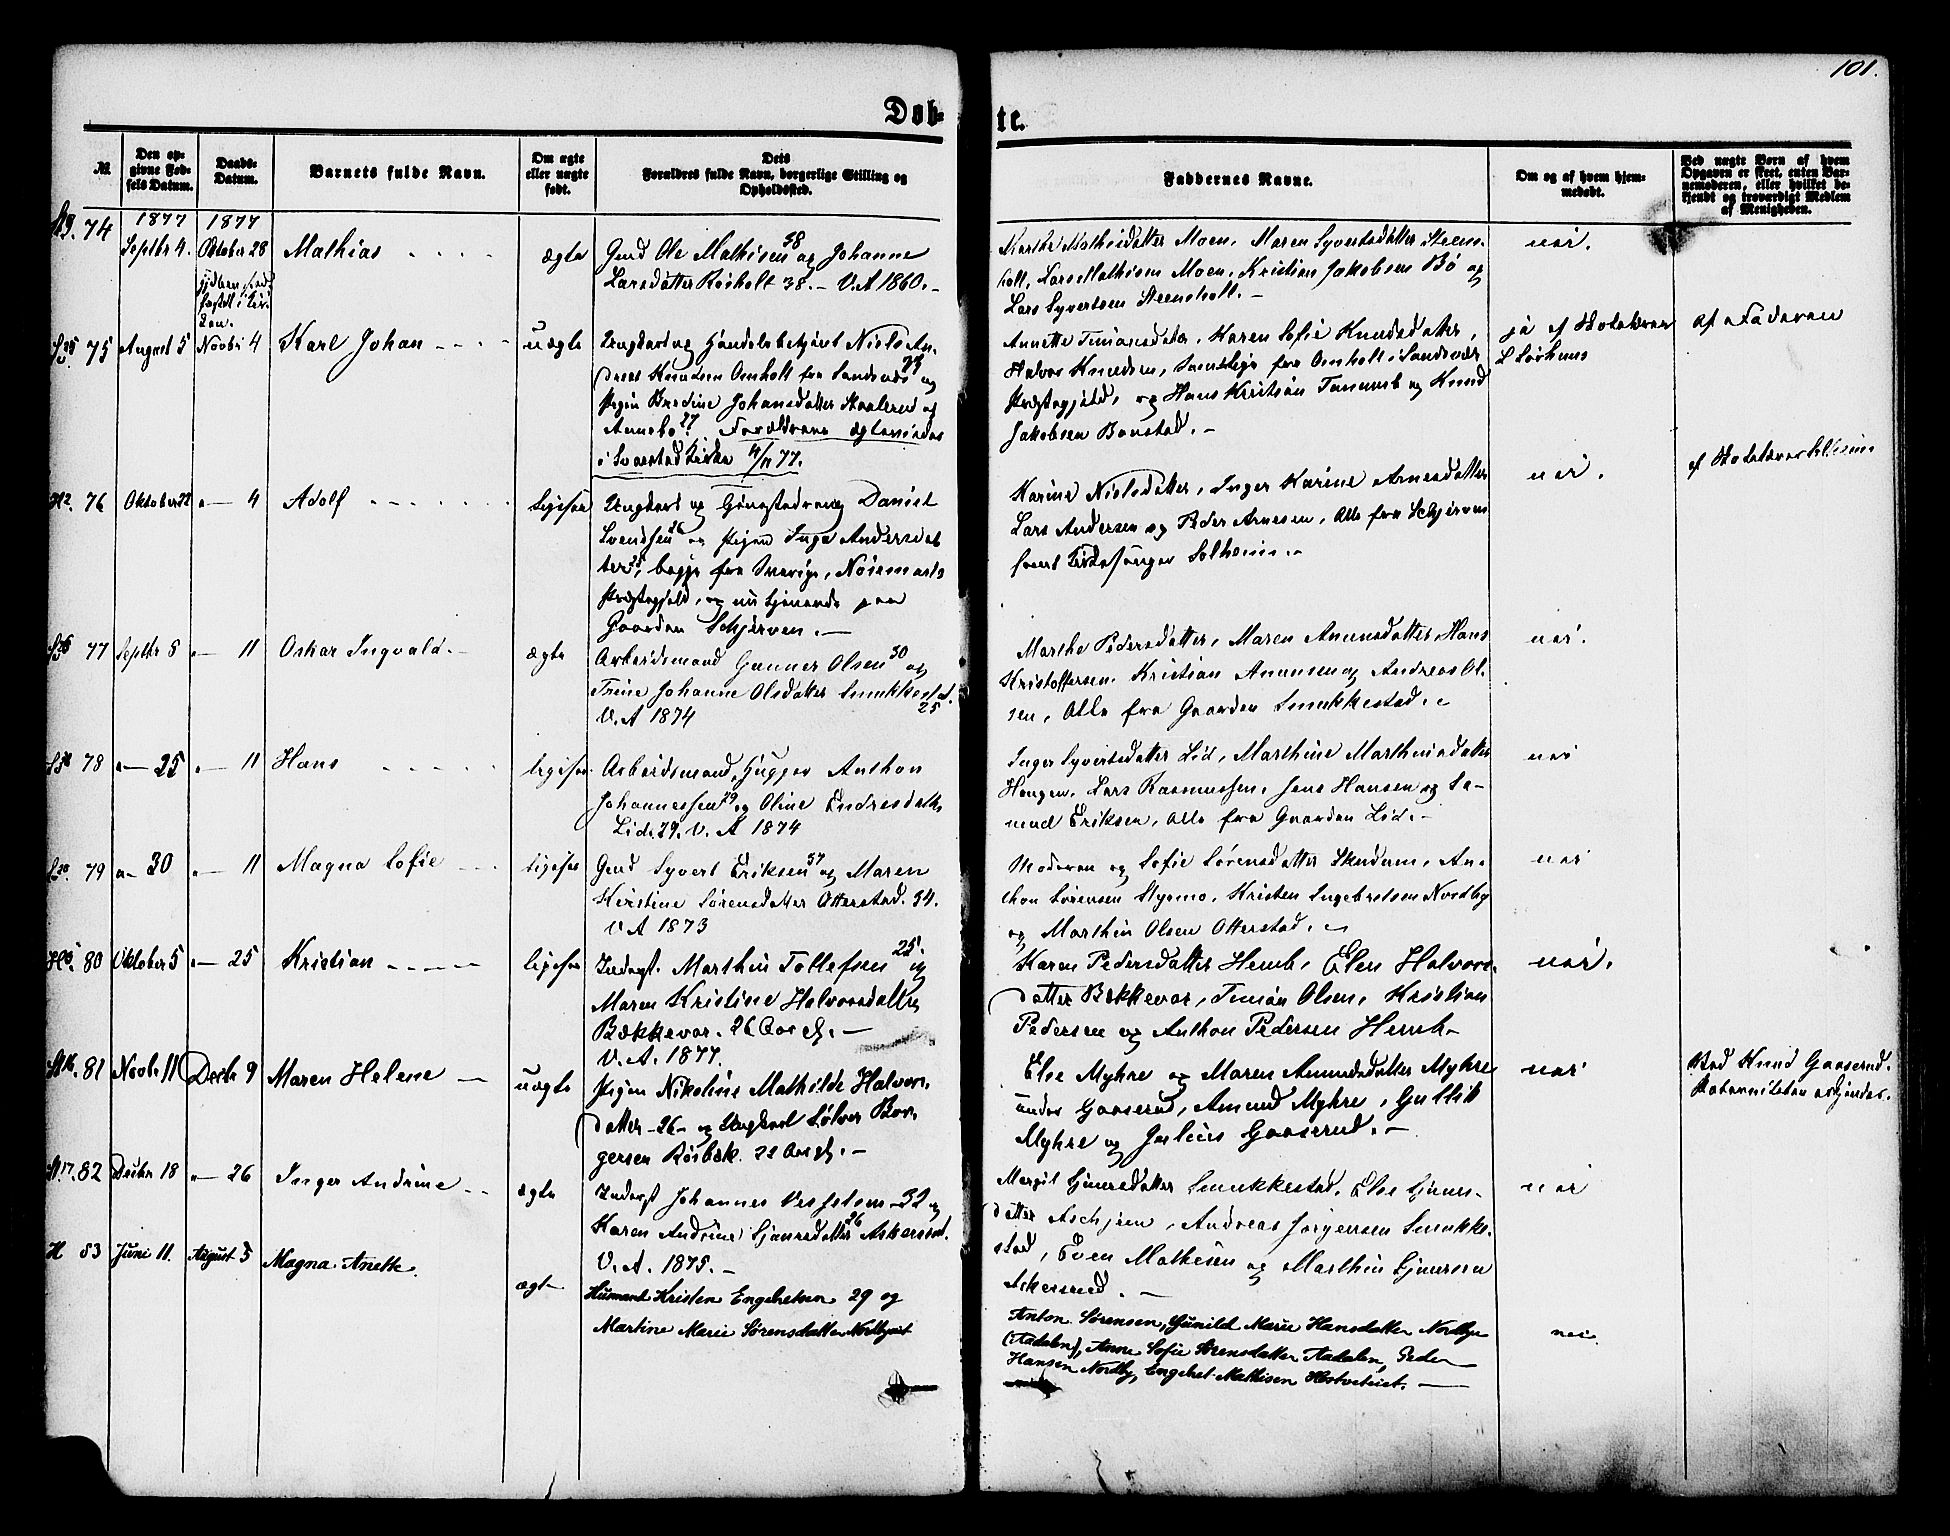 101.
Døb-
te.
№
Den op-
givne Fød-
sels Datum.
Daabs-
Datum.
Barnets fulde Navn.
Om ægte
eller uægte
født.
Dets
Forældres fulde Navn, borgerlige Stilling og
Opholdssted.
Faddernes Navne.
Om og af hvem hjem-
medøbt.
Ved uægte Born af hvem
Opgaven er skeet, enten Bar-
nemoderen, eller hvilket be-
kjendt og troværdigt Medlem
af Menigheden.
1877
1877
74
Septbr 4.
Oktober 28
Mathias
ægte
Gmd Ole Mathisen 38 og Johanne
Larsdatter Røsholt 38. – V.A 1860. –
Marthe Mathisdatter Moen, Maren Syvertsdatter Steens-
holt, Lars Mathisen Moen, Kristian Jakobsen Bø og
Lars Syvertsen Steensholt. –
nei.
75
August 5
Novbr 4
Karl Johan
uægte
Ungkarl og Handelsbetjent Niels An-
dreas Knudsen Omholt fra Sandsvær og
Pigen Berdine Johansdatter
27. Forældrene ægteviedes
i Svarstad Kirke 4/11 77.
Annette Knudsdatter, Karen Sofie Knudsdatter,
Halvor Knudsen, samtlige fra Omholt i Sandsvær
Præstegjeld, og Hans Kristian og Knud
Jakobsen Baustad. –
ja af
af Faderen
76
Oktober 22
" – 4
Adolf
ligesaa
Ungkarl og Daniel
Svendsen 26 og Pigen Inga Andersdat-
ter 25, begge fra Sverige, Nøsemarks
Præstegjeld, og nu tjenende paa
Gaarden Schjerven. –
Karine Nielsdatter, Inger Karine Arnesdatter
Lars Andersen og Peder Arnesen, Alle fra Schjerven
samt Kirkesanger Solheim. –
nei.
af Solheim
77
Septbr 8
" – 11
Oskar Ingvald. –
ægte
Arbeidsmand Gunner Olsen 30 og
Trine Johanne Olsdatter Smukkestad.
25
V. A 1874
Marthe Pedersdatter, Maren Amundsdatter, Hans
Kristoffersen, Kristian Amundsen og Andreas Ol-
sen, Alle fra Gaarden Smukkestad.
nei.
78
" – 25
" – 11
Hans
ligesaa
Arbeidsmand, Hugger Anthon
Johannessen 29 og Oline Endresdatter
Lid. 29. V. A 1874
Inger Syvertsdatter Lid, Marthine Marthinsdatter
Haugen, Lars Rasmussen, Jens Hansen og Sa-
muel Eriksen, Alle fra Gaarden Lid. –
nei
79
" – 30
" – 11
Magna Sofie
ligesaa
Gmd Syvert Eriksen 37 og Maren
Kirstine Sørensdatter Otterstad. 34.
V A 1873
Moderen og Sofie Sørensdatter Skudum, An-
thon Sørensen Styrmo, Kristen Ingebretsen Nordby
og Marthin Olsen Otterstad.
nei
80
Oktober 5
" – 25
Kristian
ligesaa
Inderst. Marthin Tollefsen 25 og
Maren Kristine Halvorsdatter
Bækkevar. 26 Aar gl. –
V. A. 1877.
Karen Pedersdatter Hemb, Elen Halvors-
datter Bækkevar, Simon Olsen, Kristian
Pedersen og Anthon Pedersen Hemb.
nei.
81
Novbr 11
Decbr 9
Maren Helene –
uægte
Pigen Nikoline Mathilde Halvors-
datter – 26 – og Ungkarl Sølver Bor-
gersen Røsbæk. 22 Aar gl. –
Else Myhre og Maren Amundsdatter Myhre
under Gaaserud, Amund Myhre, Gullik
Myhre og Julius Gaaserud. –
nei
Ved Knud Gaaserud.
82
Decbr 18
" – 26
Inger Andrine
ægte
Inderst Johannes 32 og
Karen Andrine Ljøsnesdatter 26 Askersrud.
V. A. 1875. –
Margit Smukkestad, Else
datter Aschjem, Andreas Jørgensen Smukke-
stad, Even Mathisen og Marthin
Askersrud. –
nei
H 83
Juni 11.
August 5
Magna Anette.
ægte
Husmand Kristen Engebretsen 29 og
Martine Marie Sørensdatter Nordbyeiet
Anton Sørensen, Gunild Marie Hansdatter Nordbye
(Aadalen), Anne Sofie Sørensdatter Aadalen, Peder
Hansen Nordby, Engebret Mathisen Hostveteiet. –
nei.